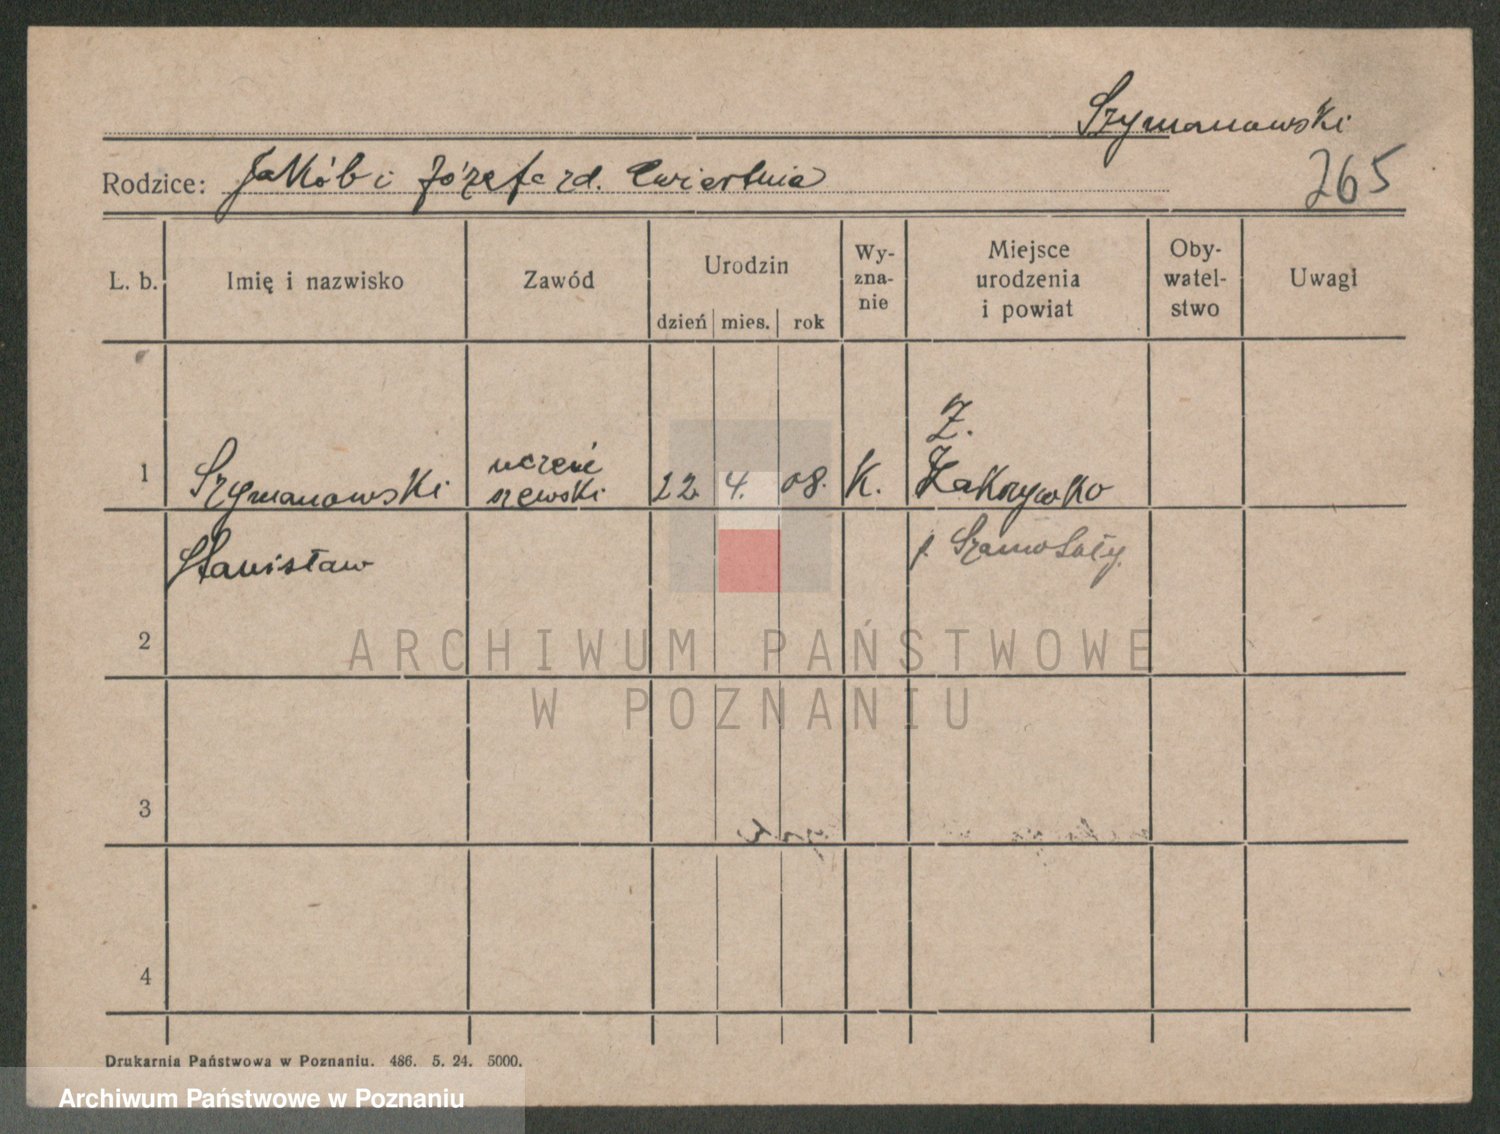 Szymanowski
Rodzice: Jakób i Józefa zd. Ćwiertnia
265
L. b. Imię i nazwisko Zawód Urodzin Wy-zna-nie Miejsce urodzenia i powiat Oby-watel-stwo Uwagi
dzień mies. rok
Z.
uczeń
1 Szymanowski szewski 22 4. 08. K. Zakrzewko
Stanisław p. Szamotuły.
2
ARCHIWUM PAŃSTWOWE
W POZNANIU
3
4
Drukarnia Państwowa w Poznaniu. 486. 5. 24. 5000.
Archiwum Państwowe w Poznaniu